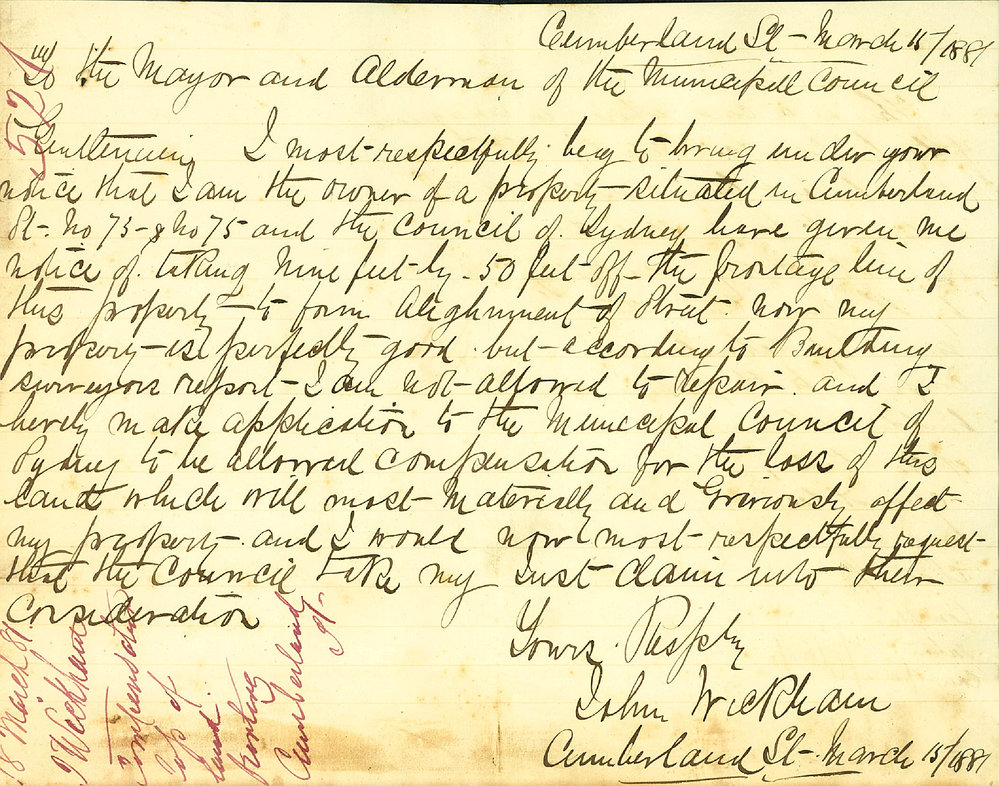 Cumberland St - March 15/1881
To the Mayor and Alderman of the Municipall Council
Gentlemen I most respectfully beg to bring under your
notice that I am the owner of a property situated in Cumberland
St. No 73 - & No 75 and the Council of Sydney have given me
notice of taking Nine feet by 50 feet off the frontage line of
this property to form Alighnment of Street. now my
property is perfectly good but according to Building
surveyors report I am not allowed to repair and I
herely make application to the Municipal Council of
Sydney to be allowed Compensation for the loss of this
land which will most Materially and Griviously affect
my property and I would now most respectfully request
that the Council take my Just claim into their
Consideration
Yours Respfly
John Wickham
Cumberland St - March 15/1881
521
18 March 81
J Wickham
Compensation
land
fronting
Cumberland
St